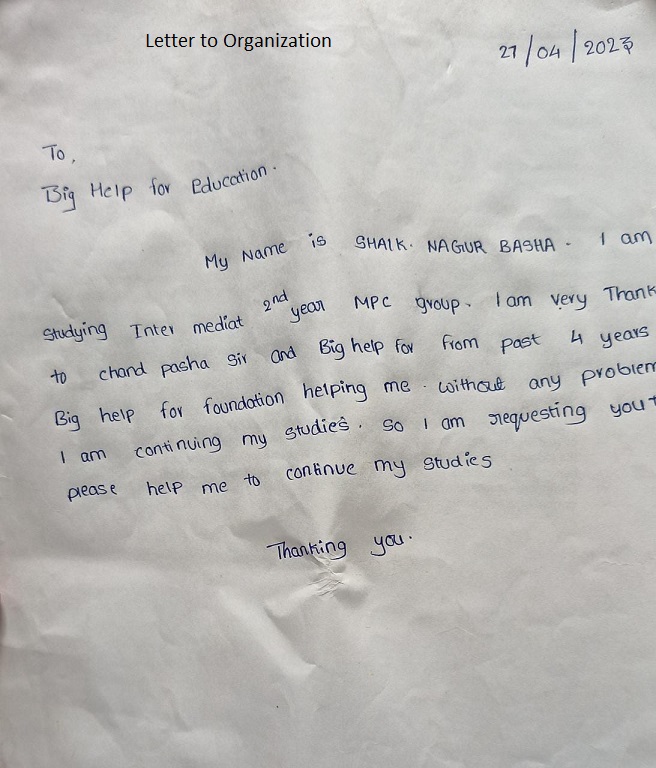 Letter to Organization
27/04/2023
To,
Big Help for Education.
My Name is SHAIK. NAGUR BASHA. I am
studying Inter mediat 2nd year MPC group. I am very Thank
to chand pasha sir and Big help for from past 4 years
Big help for foundation helping me. without any problem
I am continuing my studies. so I am requesting you
please help me to continue my studies
Thanking you.